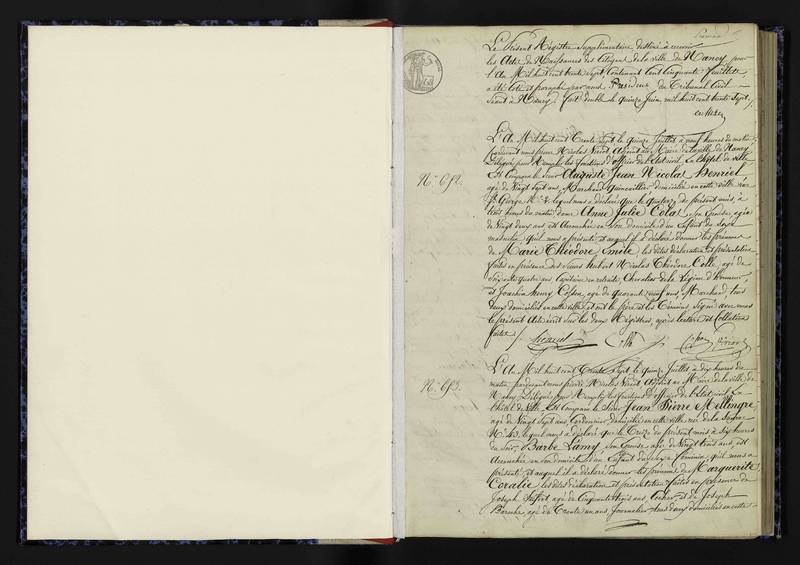 Le Présent Régistre Supplémentaire destiné à recevoir
les Actes de Naissances des Citoyens de la ville de Nancy pour
l'An Mil huit cent trente Sept, Contenant Cent Cinquante feuillets
a été Coté et paraphé par nous Président du Tribunal Civil
séant à Nancy. fait double le quinze Juin mil huit cent trente Sept.
N.º 652.
L'An Mil huit cent Trente Sept le quinze Juillet à neuf heures du matin
pardevant nous pierre Nicolas Noirot Adjoint au Maire de la ville de Nancy
Délégué pour Remplir les fonctions d'officier de l'Etat civil à l'hôtel de ville
Est Comparu le Sieur Auguste Jean Nicolas Henriel
agé de Vingt sept ans, Marchand Quincaillier domicilié en cette ville rue
St George N.º 2, lequel nous a déclaré que le quatorze du présent mois, à
trois heures du matin dame Anne Julie Colas, son Epouse, agée
de Vingt deux ans, est Accouchée en son domicile d'un Enfant du sexe
masculin, qu'il nous a présenté, et auquel il a déclaré donner les prénoms
de Marie Théodore Emile, les dites déclaration et présentation
faites en présence des Sieurs hubert Nicolas Théodore Collé, agé de
Soixante quatre ans, Capitaine en retraite, Chevalier de la Légion d'honneur
et Joachim henry agé de quarante cinq ans, Marchand, tous
deux domiciliés en cette ville, et ont le père et les Témoins Signé avec nous
le présent Acte écrit sur les deux Régistres, après lecture et Collation
faites./.
N.º 653.
L'An Mil huit cent Trente Sept le quinze Juillet à dix heures du
matin pardevant nous pierre Nicolas Noirot Adjoint au Maire de la ville de
Nancy Délégué pour Remplir les fonctions d'officier de l'Etat civil à
l'hôtel de Ville, Est Comparu le Sieur Jean Pierre Mellingre
agé de Vingt Sept ans Cordonnier domicilié en cette ville, rue de la
N.º 43, lequel nous a déclaré, que le Treize du présent mois à Six heures
du soir, Barbe Lamy, son Epouse, agée de Vingt trois ans, est
Accouchée en son domicile d'un Enfant du sexe féminin, qu'il nous a
présenté, et auquel il a déclaré donner les prénoms de Marguerite
Coralie, les dites déclaration et présentation faites en présence de
Joseph agé de Cinquante trois ans, Cocher, et de Joseph
agé de Trente un ans, Journalier, tous deux domiciliés en cette